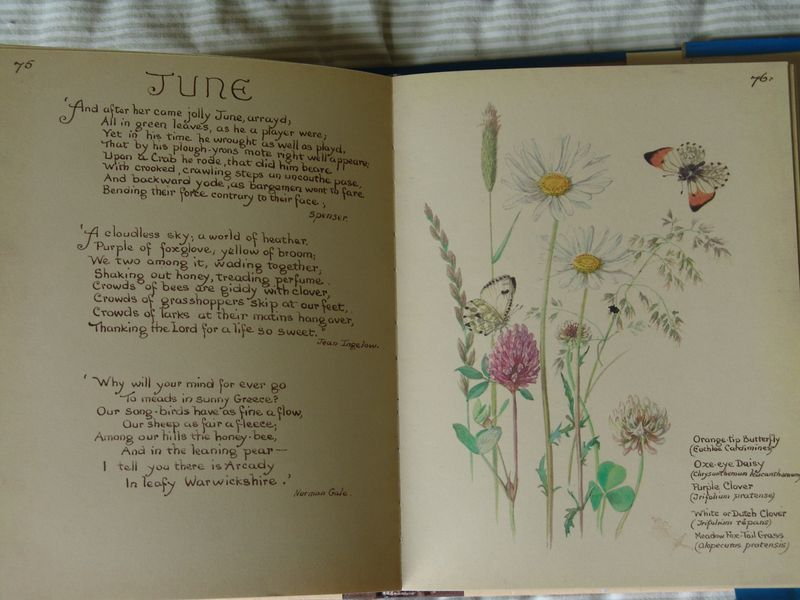 75
JUNE
'And after her came jolly June, array'd,
All in green leaves, as he a player were;
Yet in his time he wrought as well as play'd,
That by his plough-yrons mote right well appeare;
Upon a Crab he rode, that did him beare
With crooked, crawling steps an uncouthe pase,
And backward yode, as bargemen wont to fare
Bending their force contrary to their face;
Spenser.
'A cloudless sky; a world of heather,
Purple of foxglove, yellow of broom;
We two among it, wading together,
Shaking out honey, treading perfume.
Crowds of bees are giddy with clover,
Crowds of grasshoppers skip at our feet,
Crowds of larks at their matins hang over,
Thanking the Lord for a life so sweet."
Jean Ingelow.
'Why will your mind for ever go
To meads in sunny Greece?
Our song-birds have as fine a flow,
Our sheep as fair a fleece;
Among our hills the honey-bee,
And in the leaning pear—
I tell you there is Arcady
In leafy Warwickshire.'
Norman Gale.
76.
Orange-tip Butterfly
(Euchloë Cardamines)
Oxe-eye Daisy
(Chrysanthemum leucanthemum)
Purple Clover
(Trifolium pratense)
White or Dutch Clover
(Trifolium repens)
Meadow Fox-Tail Grass
(Alopecurus pratensis)